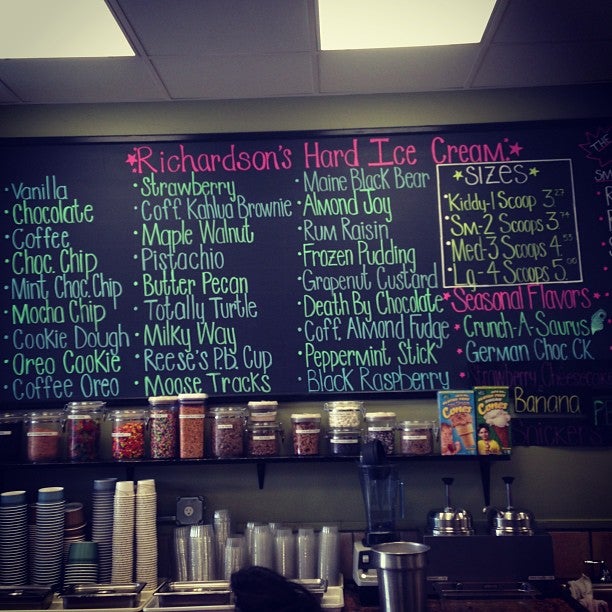 Richardson's Hard Ice Cream
Vanilla
Chocolate
Coffee
Choc. Chip
Mint Choc. Chip
Mocha Chip
Cookie Dough
Oreo Cookie
Coffee Oreo
Strawberry
Coff. Kahlua Brownie
Maple Walnut
Pistachio
Butter Pecan
Totally Turtle
Milky Way
Reese's P.b. Cup
Moose Tracks
Maine Black Bear
Almond Joy
Rum Raisin
Frozen Pudding
Grapenut Custard
Death By Chocolate
Coff. Almond Fudge
Peppermint Stick
Black Raspberry
SIZES
Kiddy-1 Scoop 3.27
Sm-2 Scoops 3.74
Med-3 Scoops 4
Lg-4 Scoops 5
Seasonal Flavors
Crunch-A-Saurus
German Choc Ck
Banana